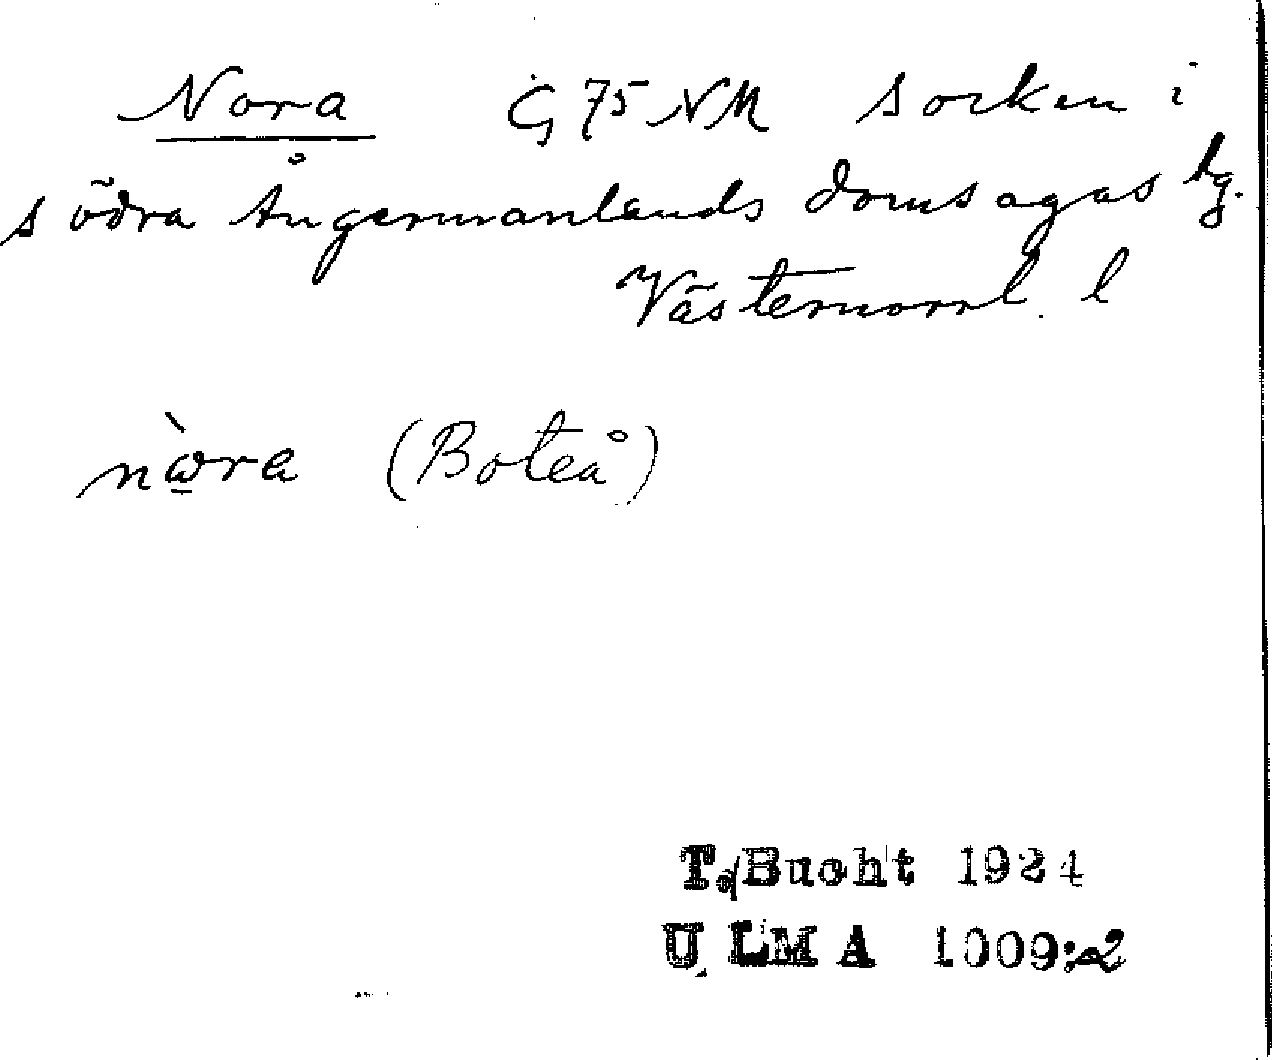 Nora G75NM socken i
södra Ångermanlands domsagas tg.
Västernorrl. l
nàra (Boteå)
T. Bucht 1924
ULMA 1009:2